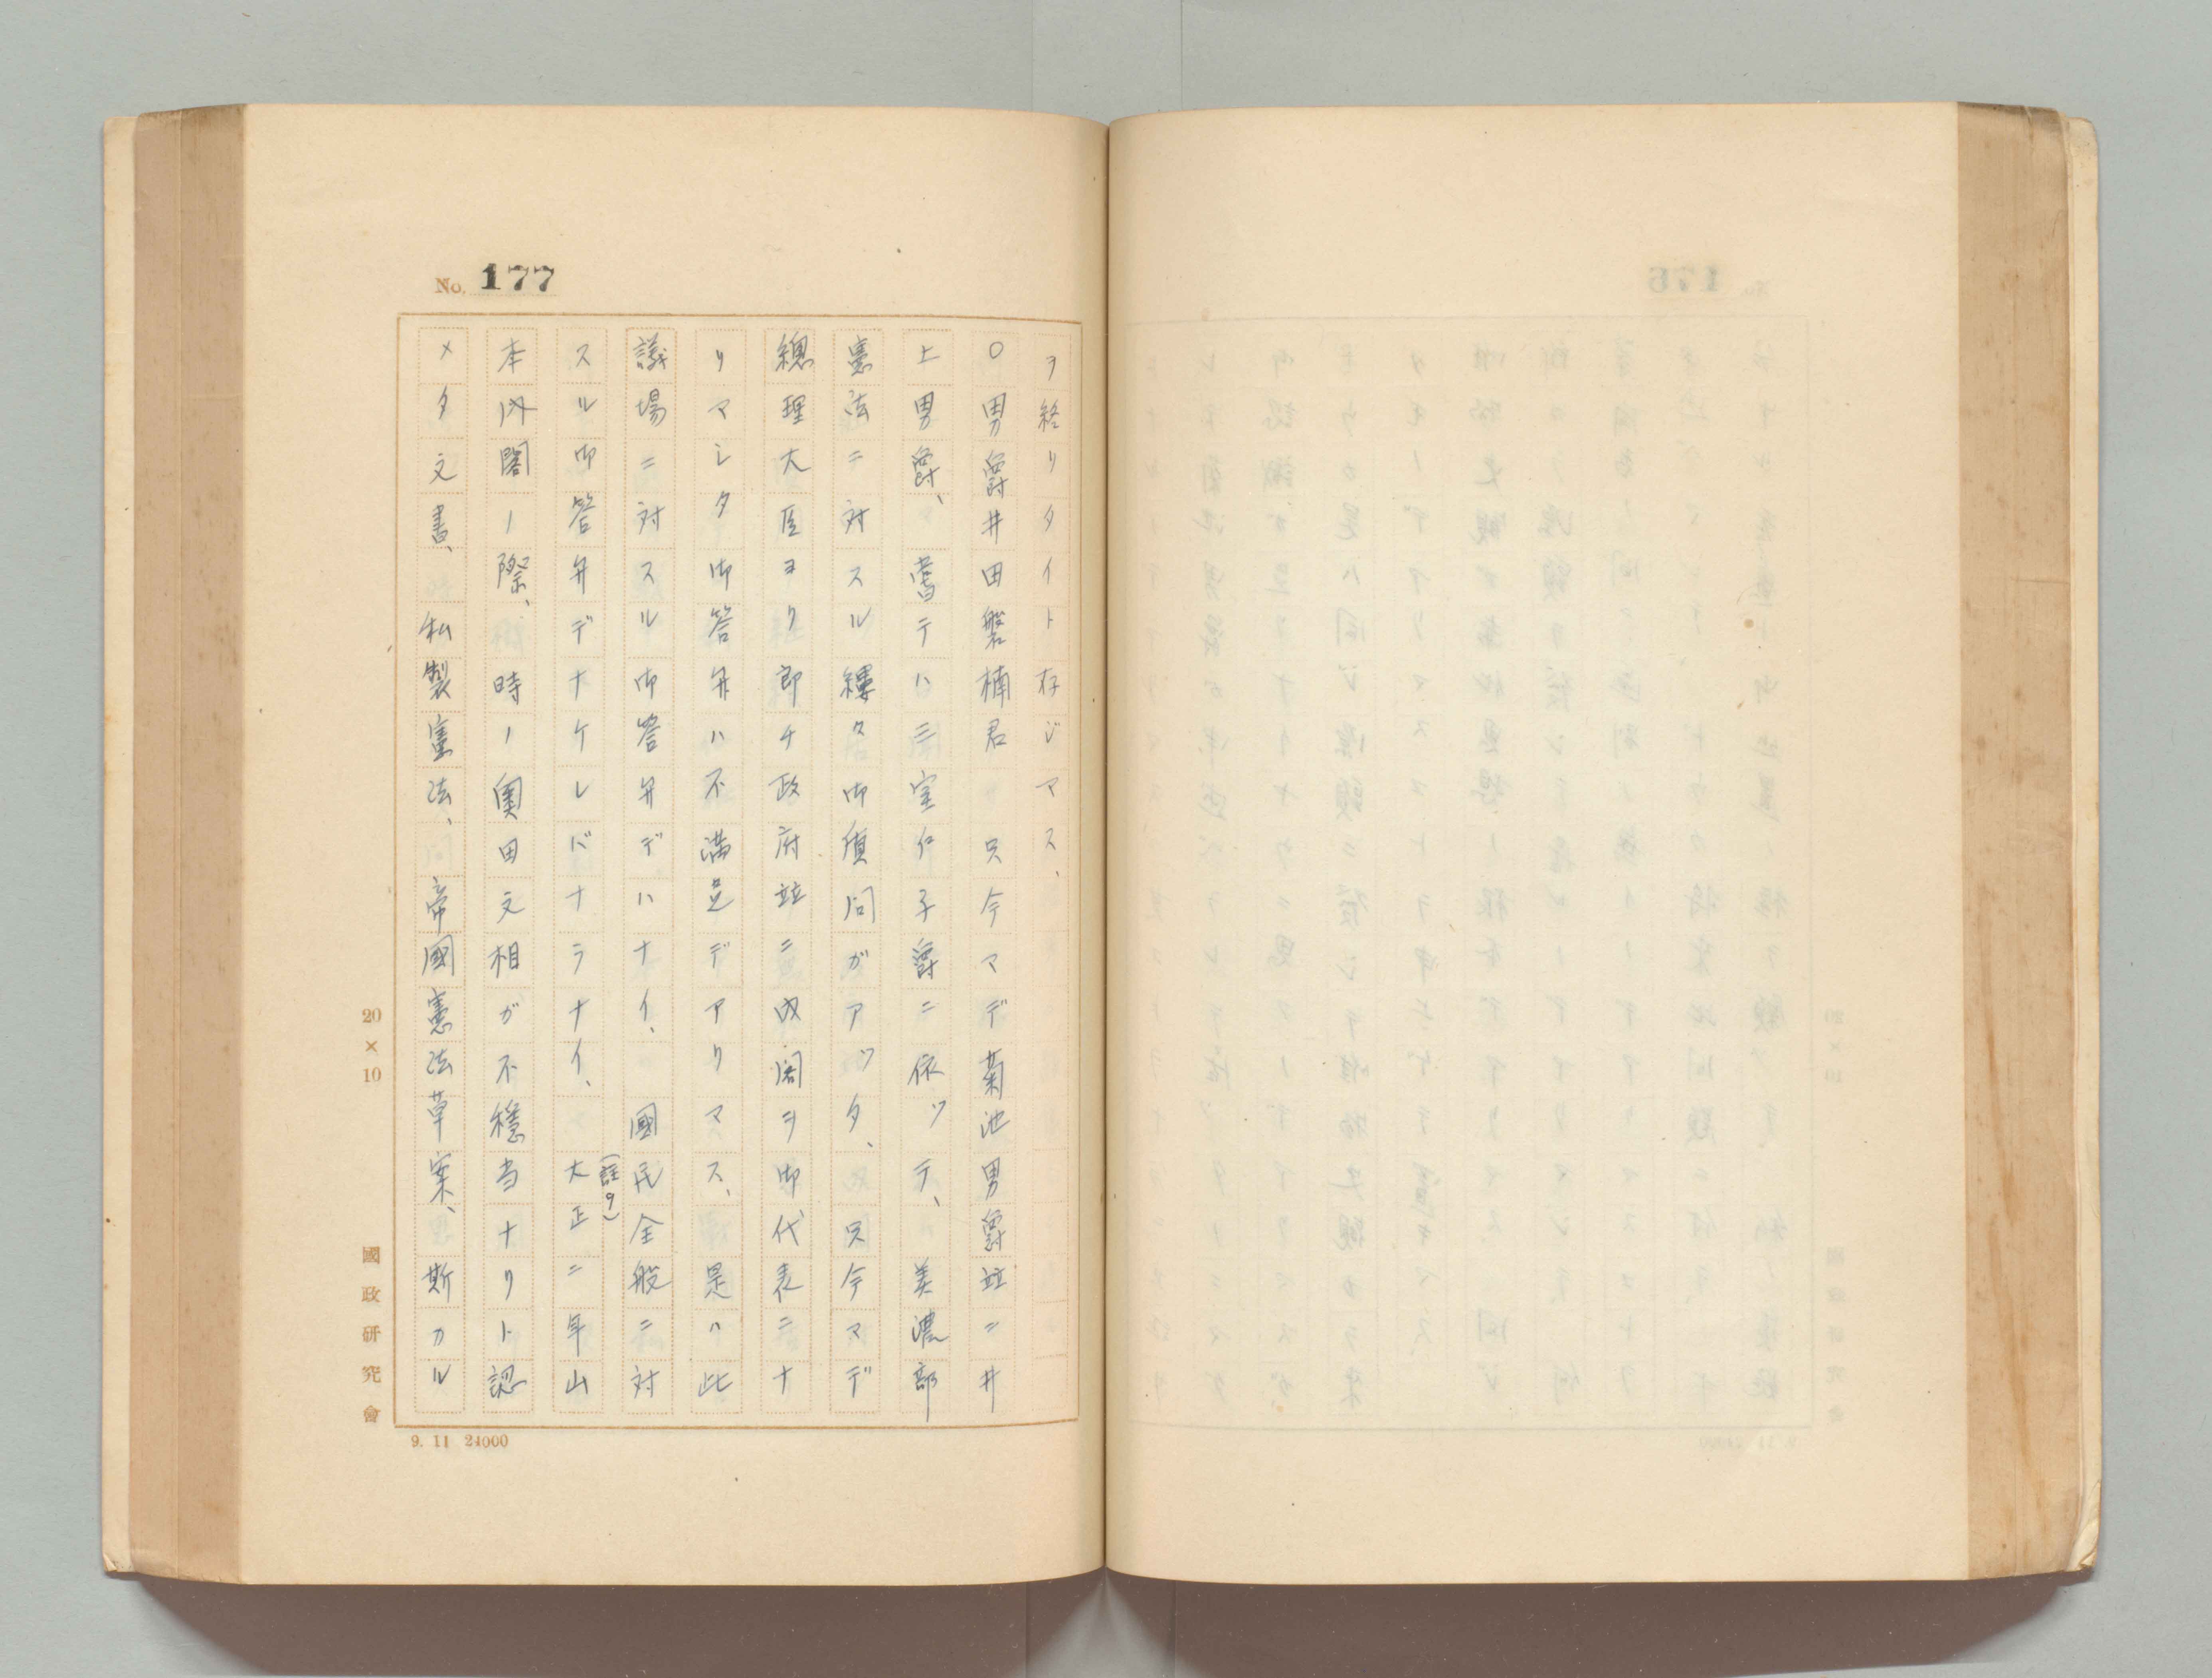 No. 177
ヲ終リタイト存ジマス、
○男爵井田磐楠君　只今マデ菊池男爵竝ニ井
上男爵、嘗テハ三室戸子爵ニ依ッテ、美濃部
憲法ニ対スル縷々御質問ガアッタ、只今マデ
總理大臣ヨリ即チ政府竝ニ内閣ヲ御代表ニナ
リマシタ御答弁ハ不満足デアリマス、是ハ此
議場ニ対スル御答弁デハナイ、國民全般ニ対
スル御答弁デナケレバナラナイ、大正二年山
(註9)
本内閣ノ際、時ノ奥田文相ガ不穏当ナリト認
メタ文書、私製憲法、帝國憲法草案、斯カル
20×10
國政研究會
9. 11 24000